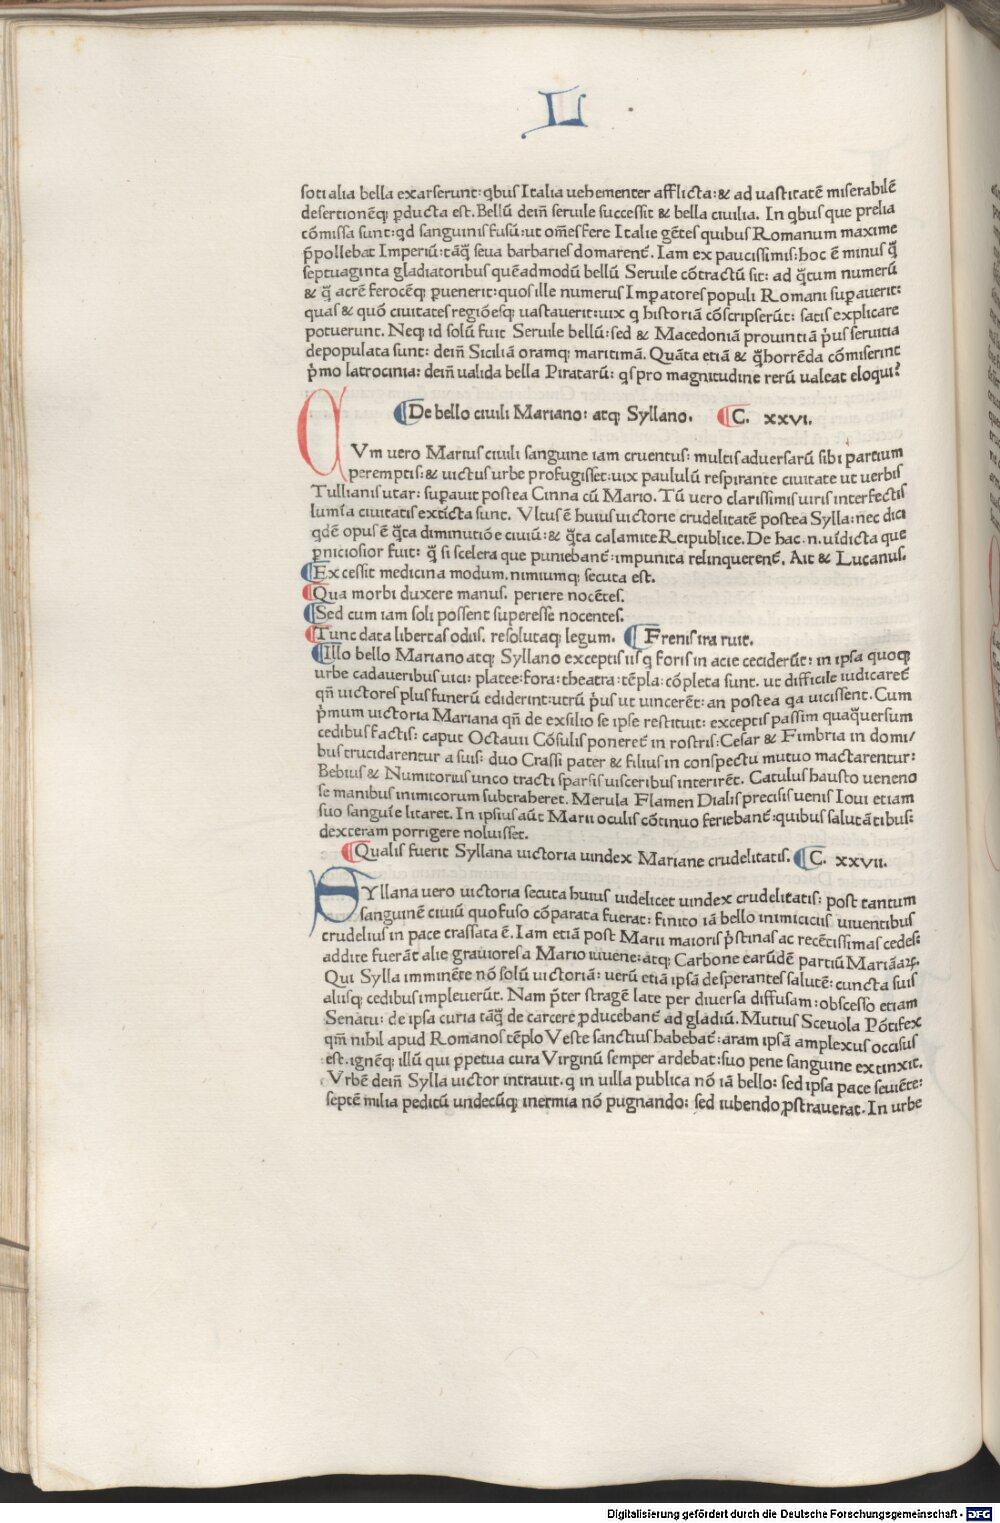 L
soti alia bella exarserunt: qbus Italia uehementer afflicta: & ad uastitatē miserabilē
desertionēq; pducta est. Bellū dein̄ seruile successit & bella ciuilia. In qbus que prelia
cōmissa sunt: qd sanguinis fusū: ut om̄es fere Italie gētes quibus Romanum maxime
p̄pollebat Imperiū: tāq̄ seua barbaries domarent̄. Iam ex paucissimis: hoc ē minus q̄
septuaginta gladiatoribus quēadmodū bellū Seruile cōtractū sit: ad q̄tum numerū
& q̄ acrē ferocēq; puenerit: quos ille numerus Impatores populi Romani supauerit:
quas & quō ciuitates regiōesq; uastauerit: uix q historiā cōscripserūt: satis explicare
potuerunt. Neq; id solū fuit Seruile bellū: sed & Macedoniā prouintiā p̄us seruitia
depopulata sunt: dein̄ Siciliā oramq; maritimā. Quāta etiā & q̄ horrēda cōmiserint
p̄mo latrocinia: dein̄ ualida bella Piratarū: qs pro magnitudine rerū ualeat eloqui?
De bello ciuili Mariano: atq; Syllano. C. xxvi.
CVm uero Marius ciuili sanguine iam cruentus: multis aduersarū sibi partium
peremptis: & uictus urbe profugisset: uix paululū respirante ciuitate ut uerbis
Tullianis utar: supauit postea Cinna cū Mario. Tū uero clarissimis uiris interfectis
lumīa ciuitatis extīcta sunt. Vltus ē huius uictorie crudelitatē postea Sylla: nec dici
qdē opus ē q̄ta diminutiōe ciuiū: & q̄ta calamite Reipublice. De hac .n. uīdicta que
pniciosior fuit: q̄ si scelera que puniebant̄: impunita relinquerent̄. Ait & Lucanus.
Excessit medicina modum. nimiumq; secuta est.
Qua morbi duxere manus. periere nocētes.
Sed cum iam soli possent superesse nocentes.
Tunc data libertas odiis. resolutaq; legum. Frenis ira ruit.
Illo bello Mariano atq; Syllano exceptis iis q foris in acie ceciderūt: in ipsa quoq;
urbe cadaueribus uici: platee: fora: theatra: tēpla: cōpleta sunt. ut difficile iudicaret̄
qn̄ uictores plus funerū ediderint: utrū p̄us ut uincerēt: an postea qa uicissent. Cum
p̄mum uictoria Mariana qn̄ de exsilio se ipse restituit: exceptis passim quaq̄uersum
cedibus factis: caput Octauii Cōsulis poneret̄ in rostris: Cesar & Fimbria in domi/
bus trucidarentur a suis: duo Crassi pater & filius in conspectu mutuo mactarentur:
Bebius & Numitorius unco tracti sparsis uisceribus interirēt. Catulus hausto ueneno
se manibus inimicorum subtraheret. Merula Flamen Dialis precisis uenis Ioui etiam
suo sanguīe litaret. In ipsius aūt Marii oculis cōtinuo feriebant̄: quibus salutātibus:
dexteram porrigere noluisset.
Qualis fuerit Syllana uictoria uindex Mariane crudelitatis. C. xxvii.
SYllana uero uictoria secuta huius uidelicet uindex crudelitatis: post tantum
sanguinē ciuiū quo fuso cōparata fuerat: finito iā bello inimicitiis uiuentibus
crudelius in pace crassata ē. Iam etiā post Marii maioris p̄stinas ac recētissimas cedes:
addite fuerāt alie grauiores a Mario iuuene: atq; Carbone earūdē partiū Mariāaꝝ.
Qui Sylla imminēte nō solū uictoriā: uerū etiā ipsā desperantes salutē: cuncta suis
aliisq; cedibus impleuerūt. Nam p̄ter stragē late per diuersa diffusam: obscesso etiam
Senatu: de ipsa curia tāq̄ de carcere pducebant̄ ad gladiū. Mutius Sceuola Pōtifex
qm̄ nihil apud Romanos tēplo Veste sanctius habebat̄: aram ipsā amplexus occisus
est. ignēq; illū qui ppetua cura Virginū semper ardebat: suo pene sanguine extinxit.
Vrbē dein̄ Sylla uictor intrauit. q in uilla publica nō iā bello: sed ipsa pace seuiēte:
septē milia peditū undecūq; inermia nō pugnando: sed iubendo pstrauerat. In urbe
Digitalisierung gefördert durch die Deutsche Forschungsgemeinschaft - DFG